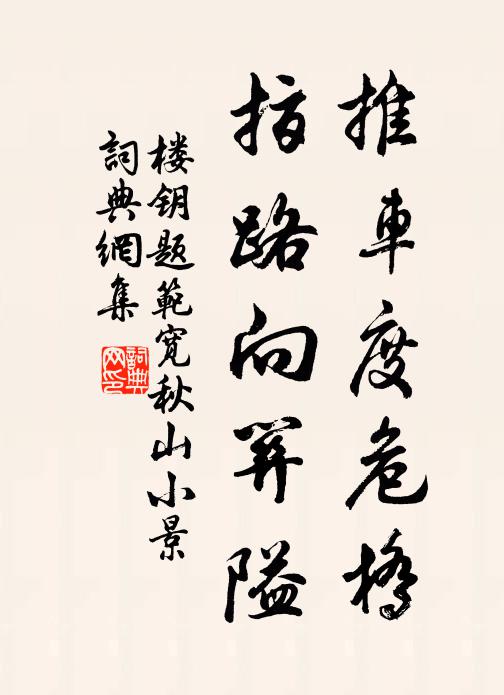 推車度危橋
指路向關隘
楼钥题範宽秋山小景
詞典網集
詞典网印